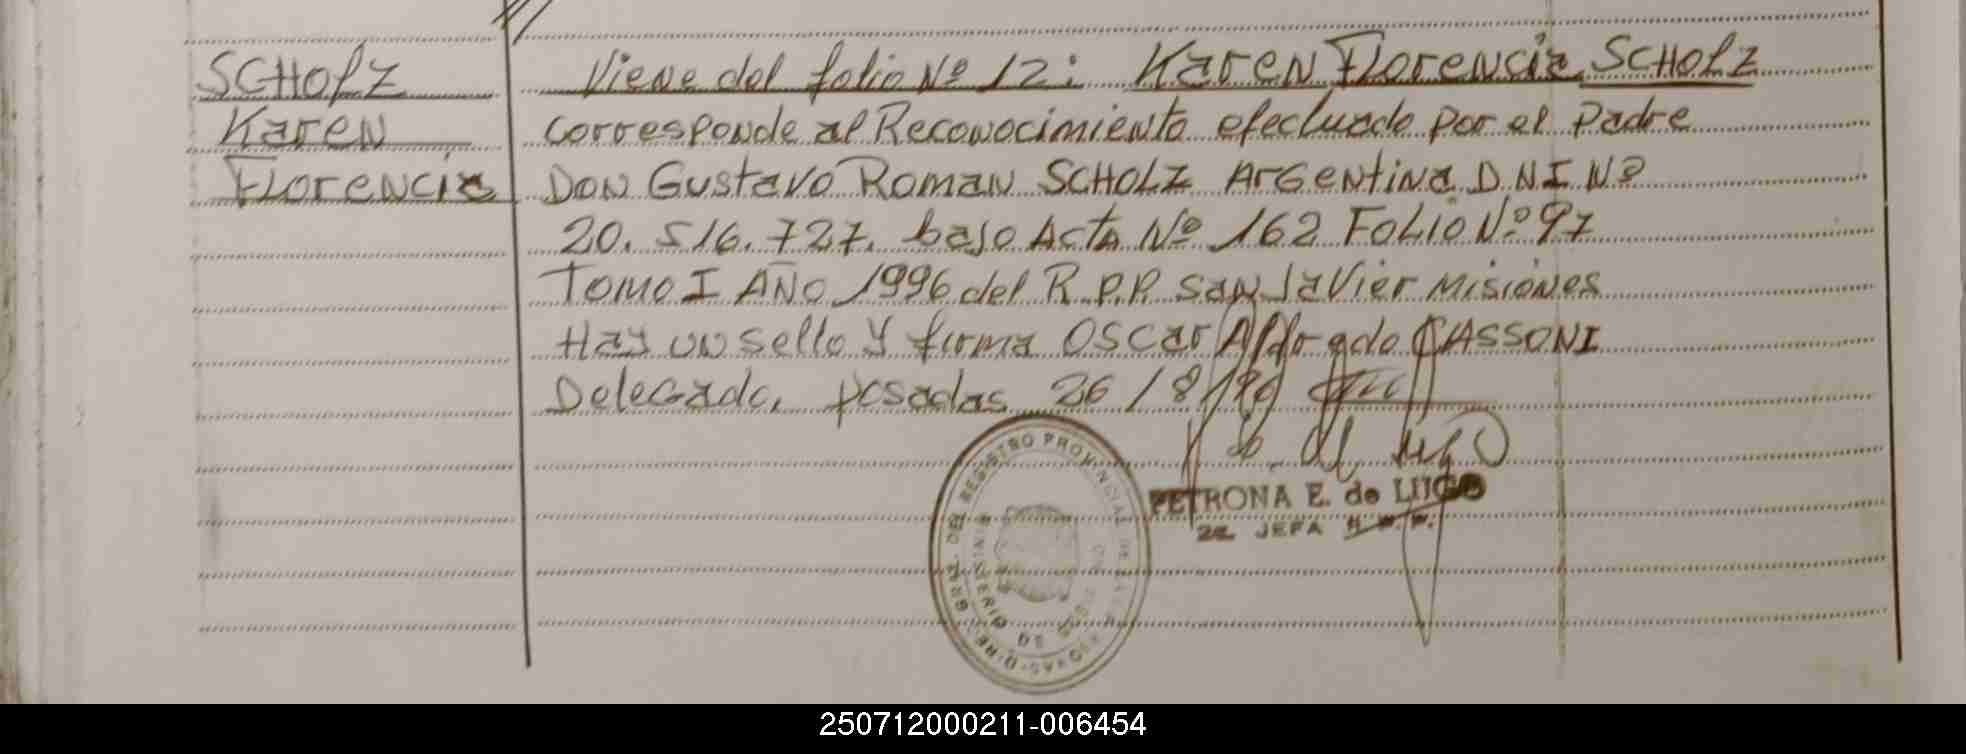 SCHOLZ
Karen
Florencia
Viene del folio Nº 12: Karen Florencia SCHOLZ
corresponde al Reconocimiento efectuado por el Padre
Don Gustavo Roman SCHOLZ Argentina D.N.I Nº
20.516.727. bajo Acta Nº 162 Folio Nº 97
Tomo I AÑO 1996 del R.P.P. San Javier Misiones
Hay un sello y firma Oscar CASSONI
Delegado. posadas 26/8/
PETRONA E. de LUGO
JEFA
GRAL. DEL REGISTRO PROVINCIAL DE LAS PERSONAS
MINISTERIO DE
250712000211-006454